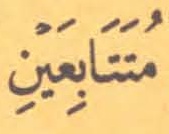 مُتَتَابِعَيْنِ